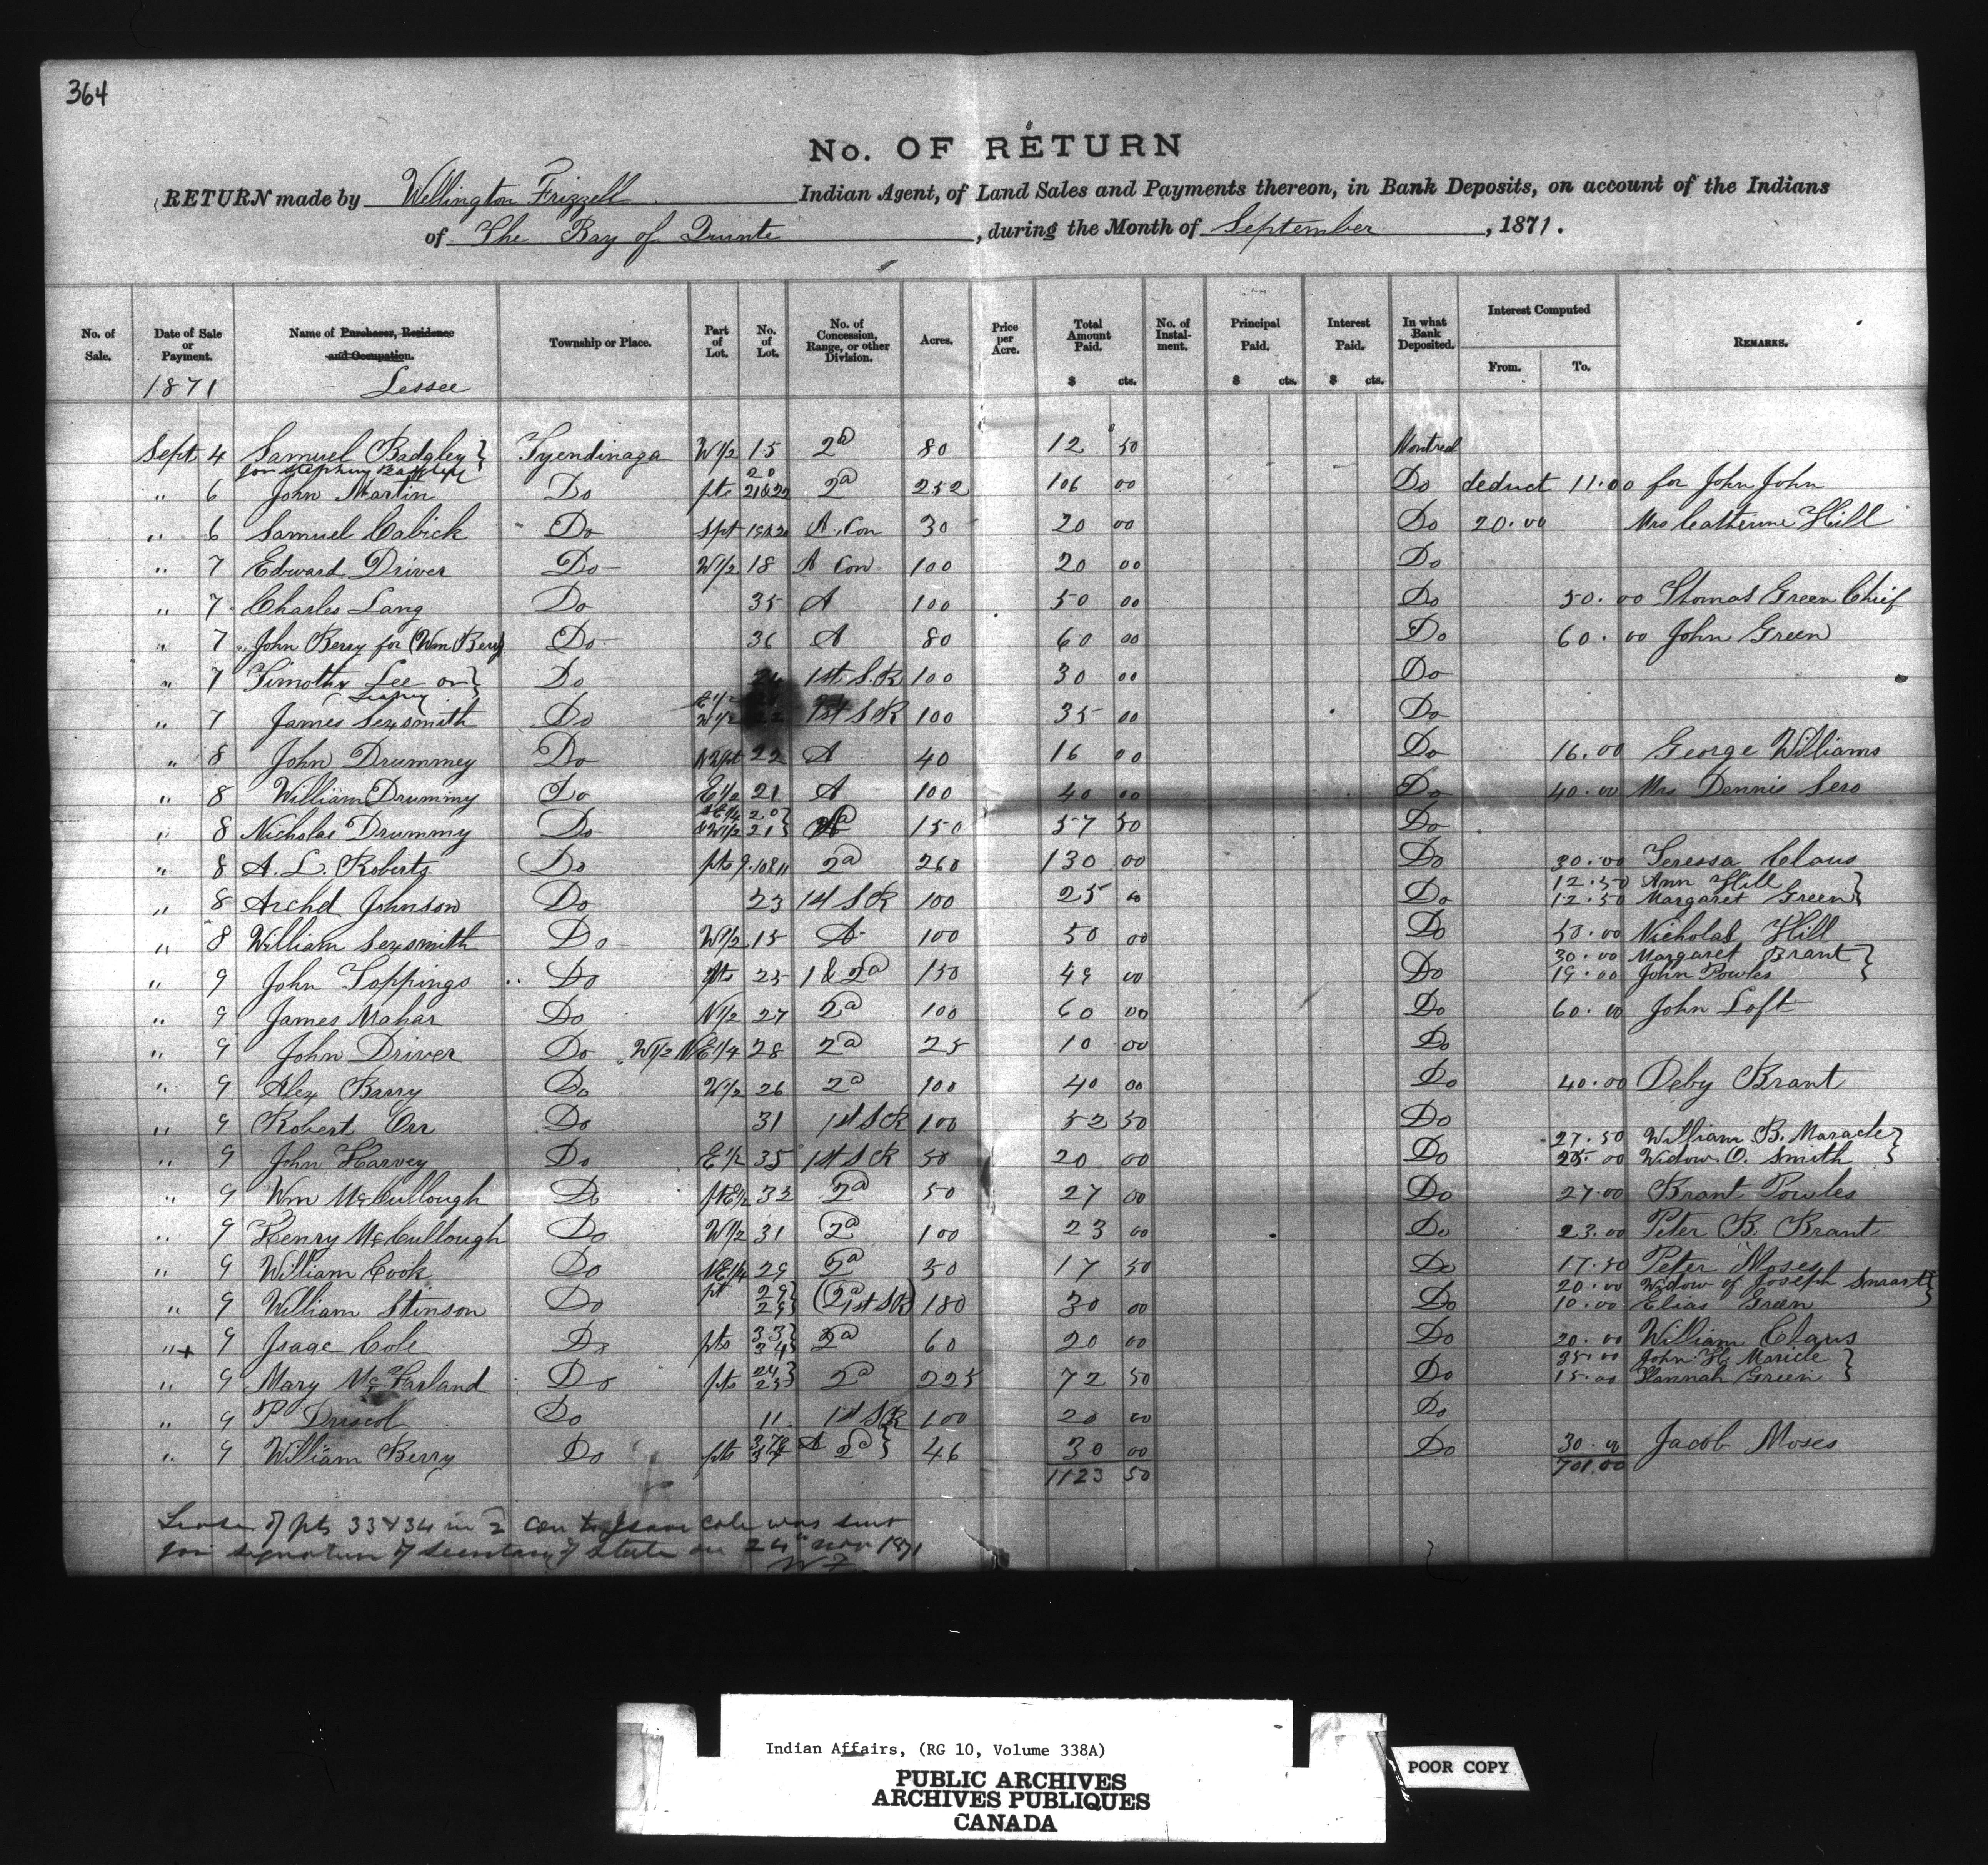 364
No. OF RETURN
RETURN made by Wellington Frizzell Indian Agent, of Land Sales and Payments thereon, in Bank Deposits, on account of the Indians
of The Bay of Quinte, during the Month of September, 1871.
No. of Sale. Date of Sale or Payment. Name of Purchaser, Residence and Occupation. Township or Place. Part of Lot. No. of Lot. No. of Concession, Range, or other Division. Acres. Price per Acre. Total Amount Paid. No. of Instalment. Principal Paid. Interest Paid. In what Bank Deposited. Interest Computed REMARKS.
From. To.
$ cts. $ cts. $ cts.
1871 Lessee
Sept 4 Samuel Badgley } Tyendinaga W1/2 15 2d 80 12 50 Montreal
for Stephen Badgley
" 6 John Martin Do pts 20 21&22 2d 252 106 00 Do deduct 11.00 for John John
" 6 Samuel Cabick Do Spt 19&20 A. Con 30 20 00 Do 20.00 Mrs Catherine Hill
" 7 Edward Driver Do W1/2 18 A Con 100 20 00 Do
" 7 Charles Lang Do 35 A 100 50 00 Do 50.00 Thomas Green Chief
" 7 John Berry for (Wm Berry) Do 36 A 80 60 00 Do 60.00 John Green
" 7 Timothy Lee or } Do 1st S.R 100 30 00 Do
" 7 James Sexsmith Do E1/2 W1/2 22 1st S R 100 35 00 Do
" 8 John Drummey Do NWpt 22 A 40 16 00 Do 16.00 George Williams
" 8 William Drummy Do E1/2 21 A 100 40 00 Do 40.00 Mrs Dennis Sero
" 8 Nicholas Drummy Do NE1/4 20 } &W1/2 21 } 2d 150 57 50 Do
" 8 A. L. Roberts Do pts 9.10&11 2d 260 130 00 Do 30.00 Teressa Claus
12.50 Ann Hill }
" 8 Archd Johnson Do 23 1st S R 100 25 00 Do 12.50 Margaret Green }
" 8 William Sexsmith Do W1/2 15 A 100 50 00 Do 50.00 Nicholas Hill
30.00 Margaret Brant }
" 9 John Toppings Do pts 25 1 & 2d 150 49 00 Do 19.00 John Powles }
" 9 James Mahar Do N1/2 27 2d 100 60 00 Do 60.00 John Loft
" 9 John Driver Do W1/2 NE1/4 28 2d 25 10 00 Do
" 9 Alex Barry Do W1/2 26 2d 100 40 00 Do 40.00 Deby Brant
" 9 Robert Orr Do 31 1st S R 100 52 50 Do
27.50 William B. Maracle }
" 9 John Harvey Do E1/2 35 1st S R 50 20 00 Do 25.00 Widow O. Smith }
" 9 Wm McCullough Do ptE1/2 32 2d 50 27 00 Do 27.00 Brant Powles
" 9 Henry McCullough Do W1/2 31 2d 100 23 00 Do 23.00 Peter B. Brant
" 9 William Cook Do NE1/4 29 2d 50 17 50 Do 17.50 Peter Moses
20.00 Widow of Joseph Smart }
" 9 William Stinson Do pt 29 } 29 } (2d 1st S R) 180 30 00 Do 10.00 Elias Green }
"+ 9 Isaac Cole Do pts 33 } 34 } 2d 60 20 00 Do 20.00 William Claus
35.00 John H. Maricle }
" 9 Mary McFarland Do pts 24 } 25 } 2d 225 72 50 Do 15.00 Hannah Green }
" 9 P Driscol Do 11 1st S R 100 20 00 Do
" 9 William Berry Do pts A 2d } 46 30 00 Do 30.00 Jacob Moses
1123 50 701.00
Lease of pts 33 & 34 in 2 con to Isaac Cole was sent
for signature of Secretary of State on 24th Nov 1871
W F
Indian Affairs, (RG 10, Volume 338A)
PUBLIC ARCHIVES
ARCHIVES PUBLIQUES
CANADA
POOR COPY